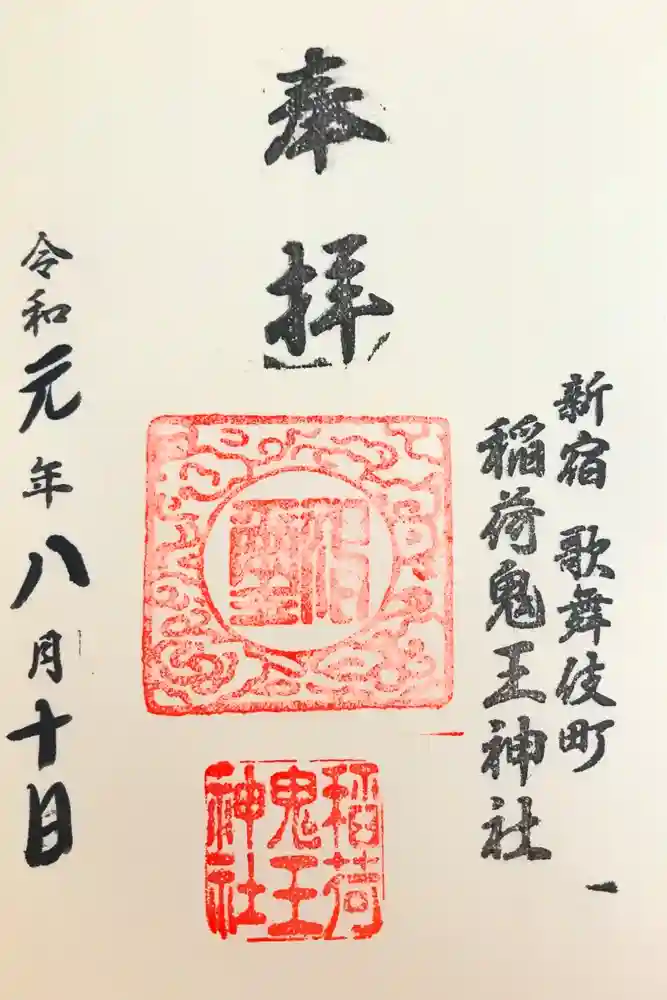 新宿 歌舞伎町
稲荷鬼王神社
奉拝
稲荷
鬼王
神社
令和元年八月十日